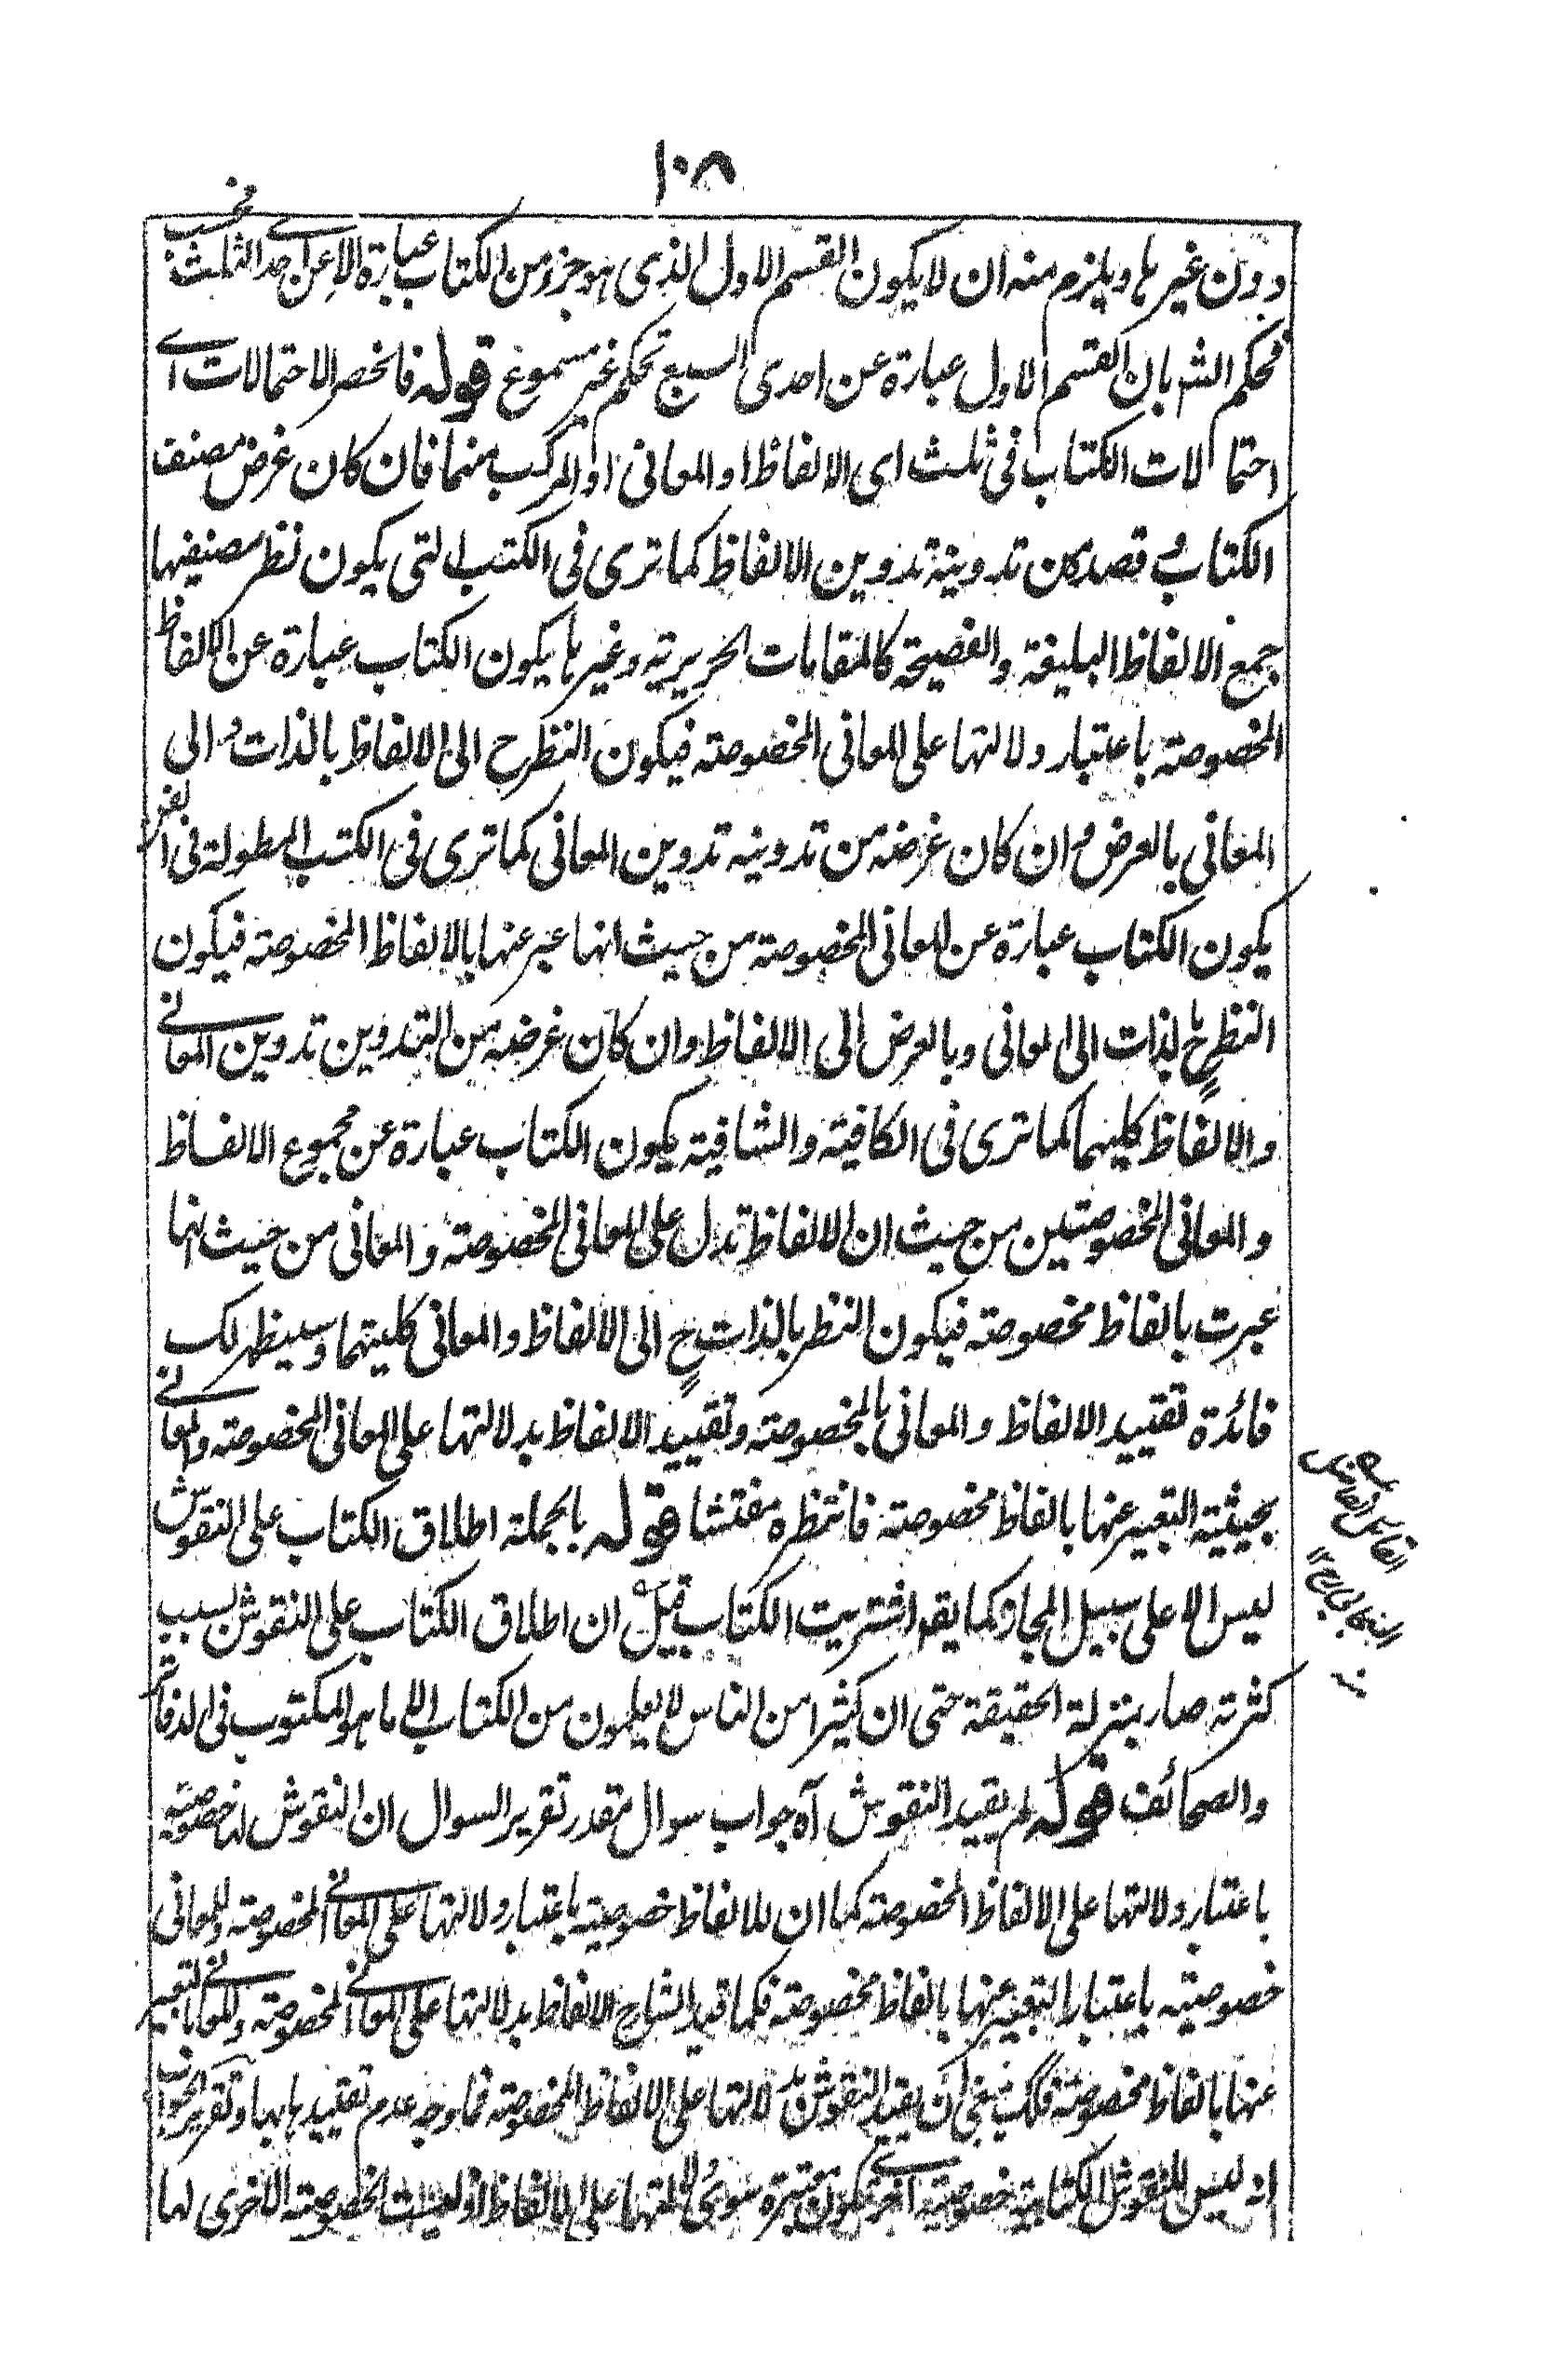 ١٠٨
دون غيرها ويلزم منه ان لا يكون القسم الاول الذى هو جزؤ من الكتاب عبارة الا عن احدى الثلث فحسب
فحكم الشه بان القسم الاول عبارة عن احدى السبع تحكم غير مسموع قوله فانحصر الاحتمالات اے
احتمالات الكتاب فى ثلث اى الالفاظ او المعانى او المركب منهما فان كان غرض مصنف
الكتاب قصده من تدوينه تدوين الالفاظ كما ترى فى الكتب التى يكون نظر مصنفيها
جمع الالفاظ البليغة والفصيحة كالمقامات الحريرية وغيرها يكون الكتاب عبارة عن الالفاظ
المخصوصة باعتبار دلالتها على المعانى المخصوصة فيكون النظر ح الى الالفاظ بالذات والى
المعانى بالعرض وان كان غرضه من تدوينه تدوين المعانى كما ترى فى الكتب المطولة فى
يكون الكتاب عبارة عن المعانى المخصوصة من حيث انها عبر عنها بالالفاظ المخصوصة فيكون
النظر ح بالذات الى المعانى وبالعرض الى الالفاظ وان كان غرضه من التدوين تدوين المعانے
والالفاظ كليهما كما ترى فى الكافية والشافية يكون الكتاب عبارة عن مجموع الالفاظ
والمعانى المخصوصتين من حيث ان الالفاظ تدل على المعانى المخصوصة والمعانى من حيث انها
عبرت بالفاظ مخصوصة فيكون النظر بالذات ح الى الالفاظ والمعانى كليتهما وسيظهر لك
فائدة تقييد الالفاظ والمعانى بالمخصوصة وتقييد الالفاظ بدلالتها على المعانى المخصوصة والمعانے
بحيثية التعبير عنها بالفاظ مخصوصة فانتظره مفتشا قوله بالجملة اطلاق الكتاب على النقوش
ليس الا على سبيل المجاز كما يقه اشتريت الكتاب قيل ان اطلاق الكتاب على النقوش بسبب
كثرته صار بمنزلة الحقيقة حتى ان كثيرا من الناس لا يعلمون من الكتاب الا ما هو المكتوب فى الدفاتر
والصحائف قوله لم يقيد النقوش آه جواب سوال مقدر تقرير السوال ان النقوش لها خصوصية
باعتبار دلالتها على الالفاظ المخصوصة كما ان للالفاظ خصوصية باعتبار دلالتها على المعانے المخصوصة وللمعانى
خصوصية باعتبار التعبير عنها بالفاظ مخصوصة فكما قيد الشارح الالفاظ بدلالتها على المعانے المخصوصة والمعانے بالتعبير
عنها بالفاظ مخصوصة فكك ينبغى ان يقيد النقوش بدلالتها على الالفاظ المخصوصة فما وجه عدم تقييدها بها وتقرير الجواب
انه ليس للنقوش الكتابية خصوصية اخرے تكون معتبرة سوى دلالتها على الالفاظ اذ ليست الخصوصية الاخرى لها